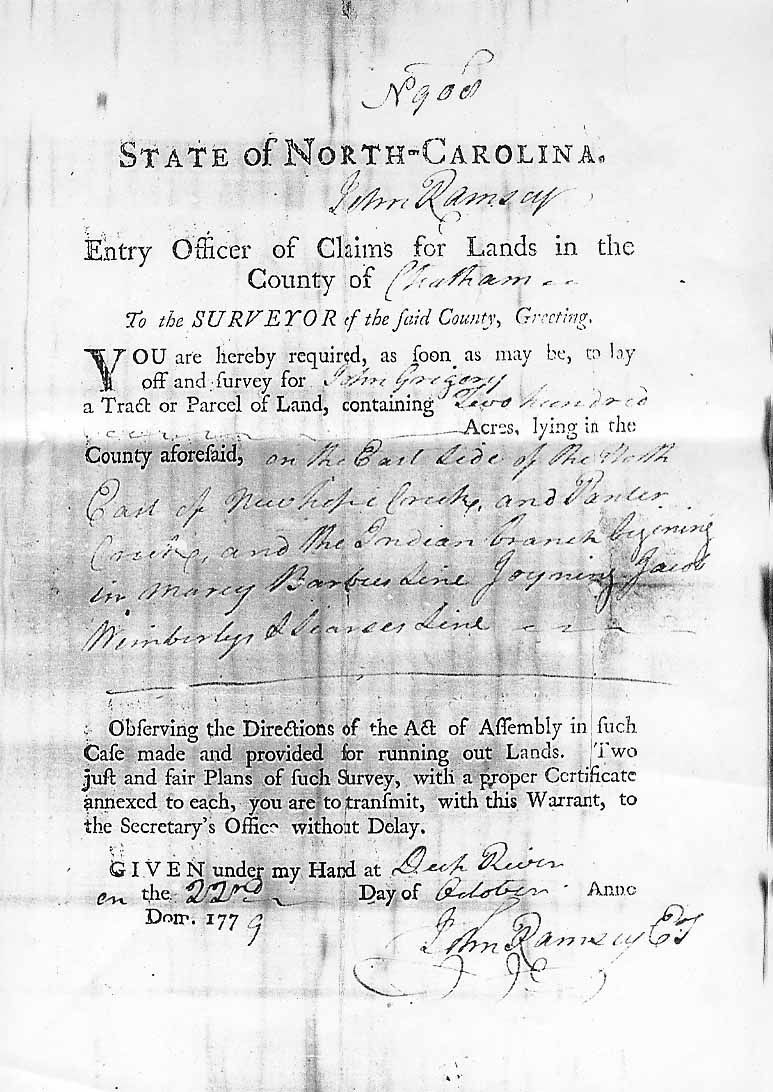 No 908
STATE of NORTH-CAROLINA.
John Ramsey
Entry Officer of Claims for Lands in the
County of Chatham
To the SURVEYOR of the ſaid County, Greeting.
YOU are hereby required, as ſoon as may be, to lay
off and ſurvey for John Grigory
a Tract or Parcel of Land, containing Two hundred
Acres, lying in the
County aforeſaid, on the East Side of the North
East of Newhope Creek, and Panter
Creek, and the Indian branch begining
in Marcy Barbees Line Joyning Jacob
Wimberleys & Searses Line
Obſerving the Directions of the Act of Aſſembly in ſuch
Caſe made and provided for running out Lands. Two
juſt and fair Plans of ſuch Survey, with a proper Certificate
annexed to each, you are to tranſmit, with this Warrant, to
the Secretary's Office without Delay.
GIVEN under my Hand at Deep River
on the 22nd Day of October Anno
Dom. 1779
John Ramsey